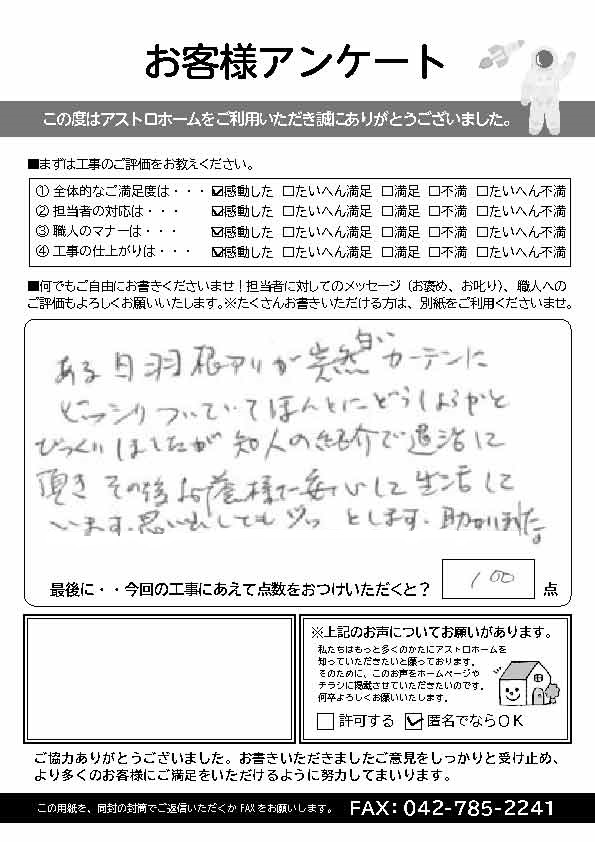 お客様アンケート
この度はアストロホームをご利用いただき誠にありがとうございました。
■まずは工事のご評価をお教えください。
① 全体的なご満足度は・・・ ☑感動した □たいへん満足 □満足 □不満 □たいへん不満
② 担当者の対応は・・・ ☑感動した □たいへん満足 □満足 □不満 □たいへん不満
③ 職人のマナーは・・・ ☑感動した □たいへん満足 □満足 □不満 □たいへん不満
④ 工事の仕上がりは・・・ ☑感動した □たいへん満足 □満足 □不満 □たいへん不満
■何でもご自由にお書きくださいませ！担当者に対してのメッセージ（お褒め、お叱り）、職人への
ご評価もよろしくお願いいたします。※たくさんお書きいただける方は、別紙をご利用くださいませ。
ある日羽根アリが突然白いカーテンに
どっシリついていてほんとにどうしようかと
びっくりしましたが知人の紹介で退治して
頂きその後お蔭様で安心して生活して
います。思い出してもゾッとします。助かりました。
最後に・・今回の工事にあえて点数をおつけいただくと？ 100 点
※上記のお声についてお願いがあります。
私たちはもっと多くのかたにアストロホームを
知っていただきたいと願っております。
そのために、このお声をホームページや
チラシに掲載させていただきたいのです。
何卒よろしくお願いいたします。
□許可する ☑匿名でならＯＫ
ご協力ありがとうございました。お書きいただきましたご意見をしっかりと受け止め、
より多くのお客様にご満足をいただけるように努力してまいります。
この用紙を、同封の封筒でご返信いただくか FAX をお願いします。 FAX：042-785-2241